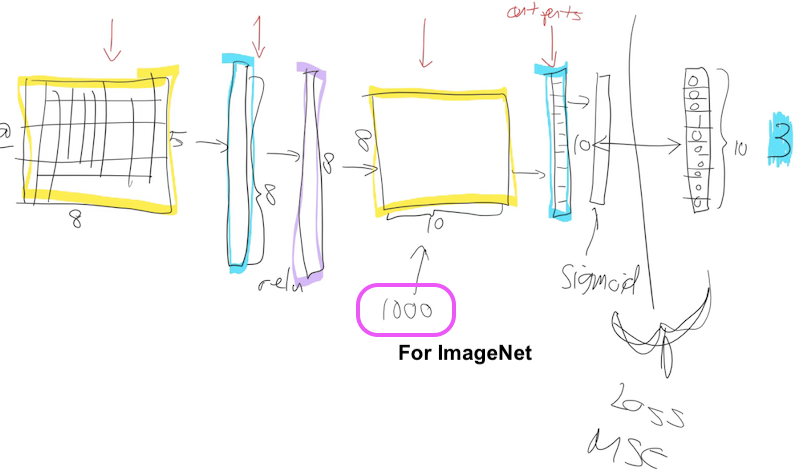 outputs
5
8
8
relu
8
8
10
1000
For ImageNet
10
Sigmoid
0
0
0
1
0
0
0
0
0
0
10
3
Loss
MSE